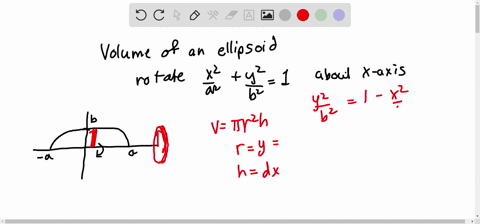 Volume of an ellipsoid
rotate x²/a² + y²/b² = 1 about x-axis
y²/b² = 1 - x²/
b
-a a
V = πr²h
r = y =
h = dx